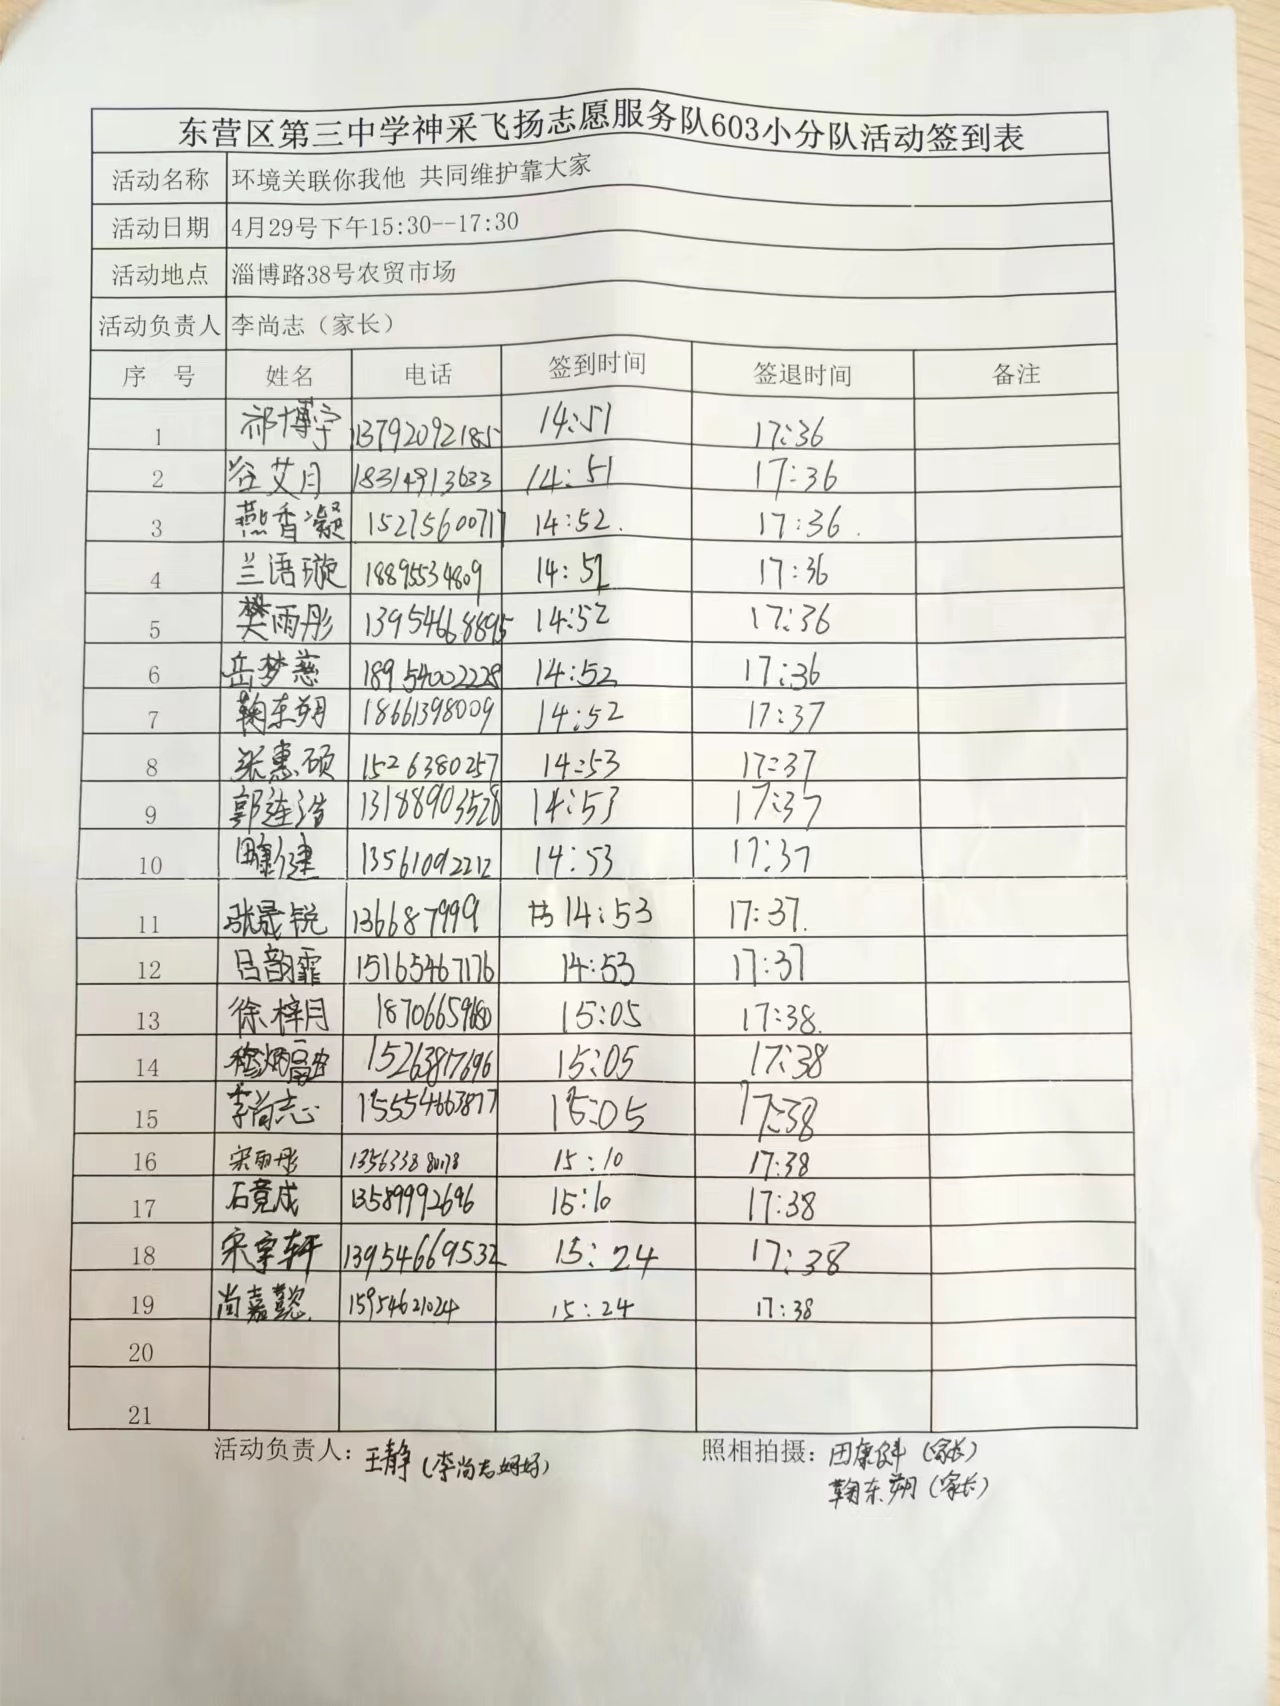 东营区第三中学神采飞扬志愿服务队603小分队活动签到表
活动名称 环境关联你我他 共同维护靠大家
活动日期 4月29号下午15:30--17:30
活动地点 淄博路38号农贸市场
活动负责人 李尚志（家长）
序 号 姓名 电话 签到时间 签退时间 备注
1 祁博宇 13792092185 14:51 17:36
2 谷艾月 18314913633 14:51 17:36
3 燕香凝 15275600717 14:52. 17:36.
4 兰语璇 18895534809 14:52 17:36
5 樊雨彤 13954668895 14:52 17:36
6 岳梦慈 18954002228 14:52 17:36
7 鞠东朔 18661398009 14:52 17:37
8 张惠硕 1526380257 14:53 17:37
9 郭连浩 13188903528 14:53 17:37
10 田康健 13561092212 14:53 17:37
11 张晟锐 136687999 14:53 17:37.
12 吕韵霏 15165467176 14:53 17:37
13 徐梓月 15:05 17:38.
14 15263817696 15:05 17:38
15 李尚志 15554663877 15:05 17:38
16 宋雨彤 15:10 17:38
17 石竟成 13589992696 15:10 17:38
18 宋宇轩 13954669532 15:24 17:38
19 尚嘉懿 15954621024 15:24 17:38
20
21
活动负责人：王静（李尚志妈妈） 照相拍摄：田康健（家长）
鞠东朔（家长）